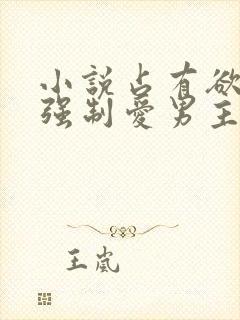 小説占有欲
强制愛男主
王嵐